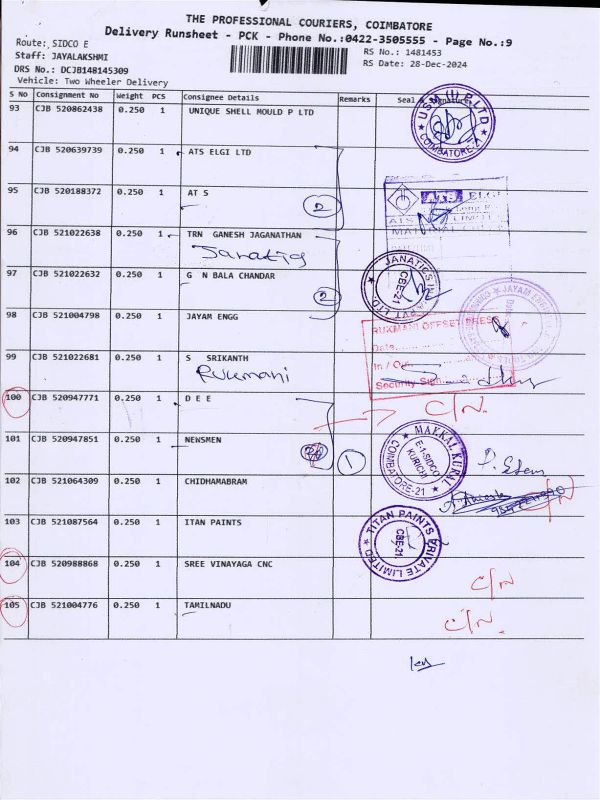 THE PROFESSIONAL COURIERS, COIMBATORE
Delivery Runsheet - PCK - Phone No.:0422-3505555 - Page No.:9
Route: SIDCO E
Staff: JAYALAKSHMI
DRS No.: DCJB148145309
Vehicle: Two Wheeler Delivery
RS No.: 1481453
RS Date: 28-Dec-2024
S No Consignment No Weight PCS Consignee Details Remarks Seal & Signature
93 CJB 520862438 0.250 1 UNIQUE SHELL MOULD P LTD
94 CJB 520639739 0.250 1 ATS ELGI LTD
95 CJB 520188372 0.250 1 AT S
2
96 CJB 521022638 0.250 1 TRN GANESH JAGANATHAN
Janatics
97 CJB 521022632 0.250 1 G N BALA CHANDAR
2
98 CJB 521004798 0.250 1 JAYAM ENGG
99 CJB 521022681 0.250 1 S SRIKANTH
Rukmani
100 CJB 520947771 0.250 1 D E E
C/N.
101 CJB 520947851 0.250 1 NEWSMEN
1
102 CJB 521064309 0.250 1 CHIDHAMABRAM
103 CJB 521087564 0.250 1 ITAN PAINTS
104 CJB 520988868 0.250 1 SREE VINAYAGA CNC
C/N
105 CJB 521004776 0.250 1 TAMILNADU
C/N.
COIMBATORE-21
ATS ELGI
JANATICS
CBE-21
RUKMANI OFFSET PRESS
Date
In / Out
Security Sign
MAKKAL KURAL
E-1-SIDCO
KURICHI
COIMBATORE-21
TITAN PAINTS PRIVATE LIMITED
CBE-21